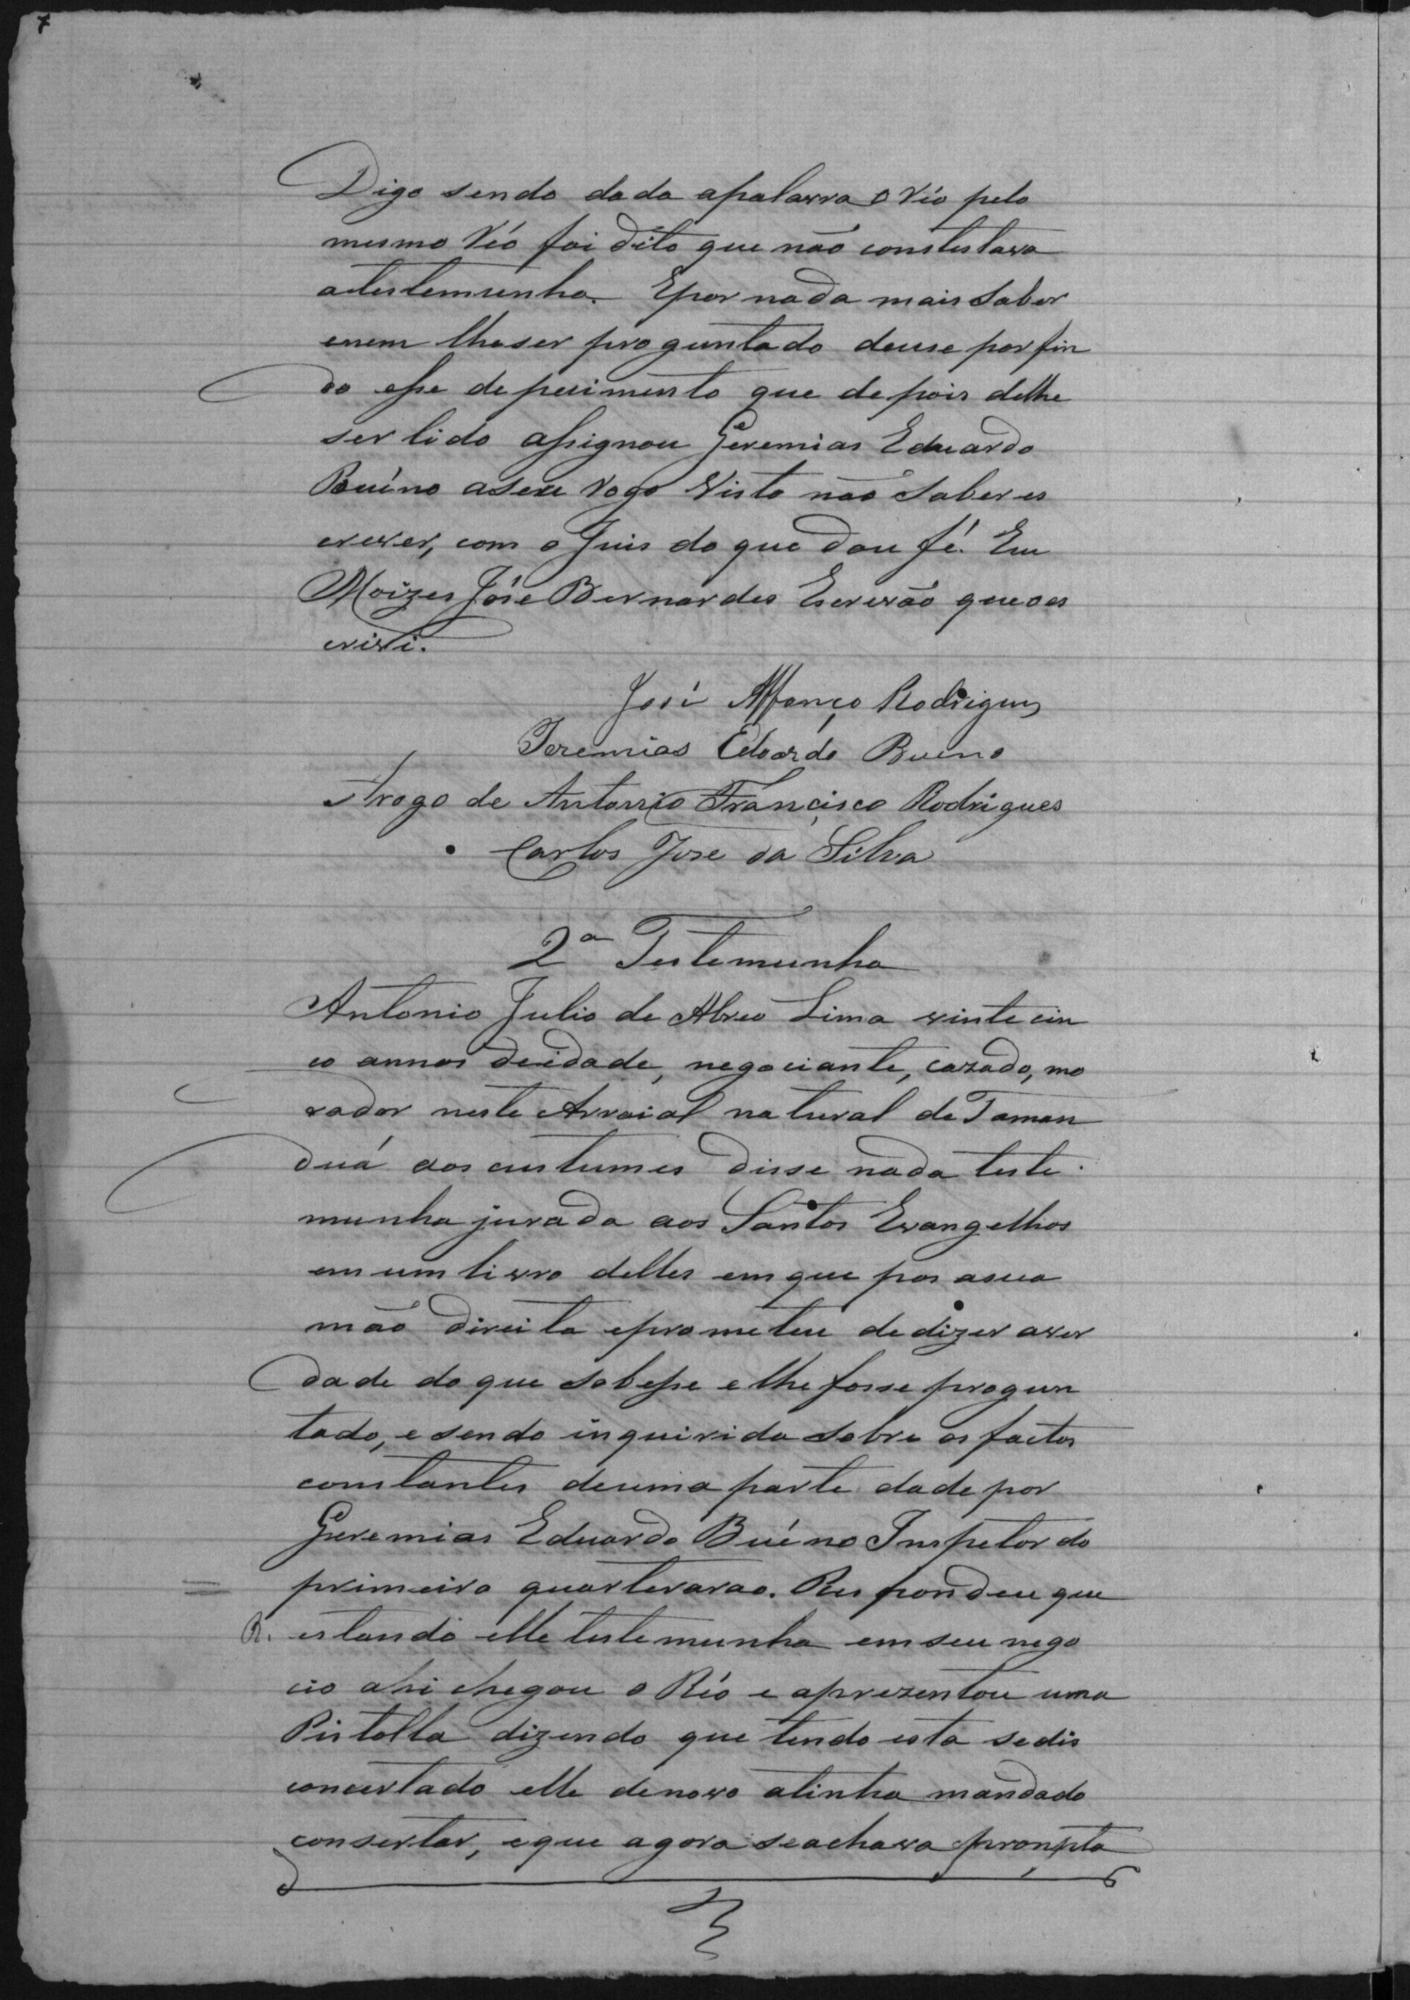 7
Digo sendo dada apalavra o Réo pelo
mesmo Réo foi dito que não constestava
atestemunha. Epor nada mais saber
enem lheser proguntado deuse porfin
do esse depoimento que depois delhe
ser lido assignou Geremias Eduardo
Buéno aseu rogo visto não saber es
crever, com o Juis do que dou fé. Eu
Moizes José Bernardes Escrivão queoes
crivi.
José Affonço Rodrigues
Jeremias Edoardo Bueno
Arogo de Antonio Francisco Rodrigues
Carlos Jose da Silva
2ª Testemunha
Antonio Julio de Abreo Lima vintecin
co annos deidade, negociante, cazado, mo
rador neste Arraial natural de Taman
duá aos custumes disse nada teste
munha jurada aos Santos Evangelhos
em um livro delles emque pos asua
mão direita eprometeu dedizer aver
dade doque sobesse elhe fosse progun
tado, e sendo inquirido sobre os factos
constantes deuma parte dade por
Geremias Eduardo Buéno Inspetor do
primeiro quarterarao. Respondeu que
R. estando elle testemunha emseu nego
cio ahi chegou o Réo e aprezentou uma
Pistolla dizendo que tendo esta sedis
concertado elle denovo atinha mandado
consertar, eque agora seachava prompta